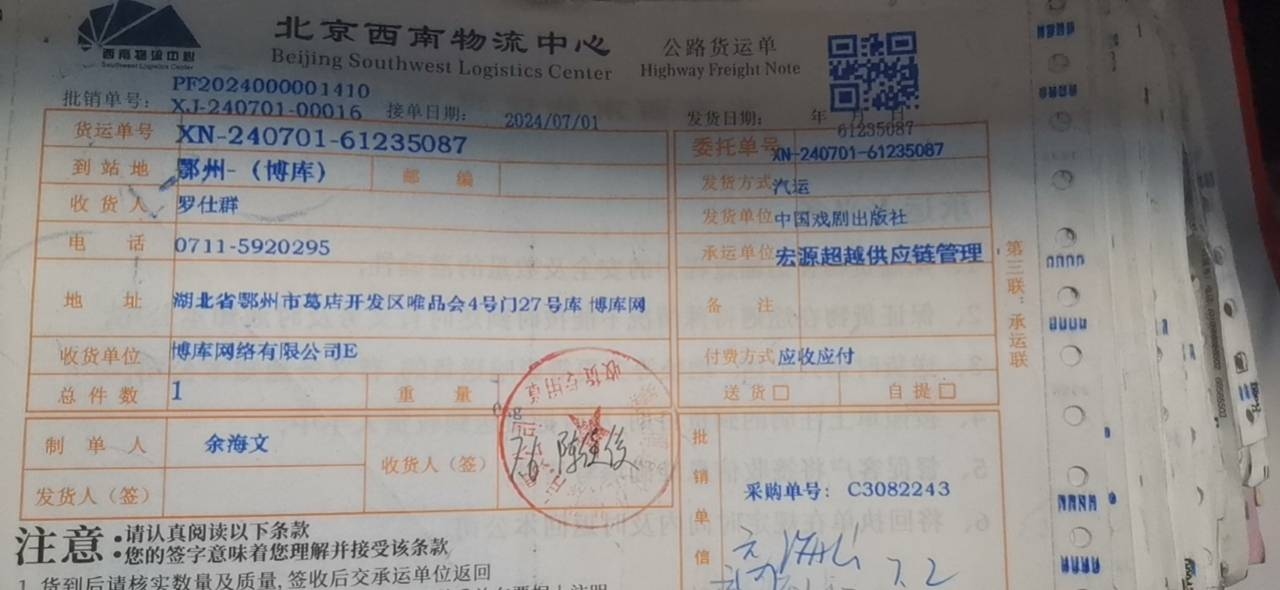 西南物流中心
Southwest Logistics Center
北京西南物流中心
Beijing Southwest Logistics Center
公路货运单
Highway Freight Note
批销单号：
PF2024000001410
XJ-240701-00016
接单日期： 2024/07/01
发货日期： 年 月 日
61235087
货运单号 XN-240701-61235087
委托单号 XN-240701-61235087
到站地 鄂州-（博库） 邮编
发货方式 汽运
收货人 罗仕群
发货单位 中国戏剧出版社
电话 0711-5920295
承运单位 宏源超越供应链管理
地址 湖北省鄂州市葛店开发区唯品会4号门27号库 博库网
备注
收货单位 博库网络有限公司E
付费方式 应收应付
总件数 1 重量
送货□ 自提□
制单人 余海文
收货人（签）
收货专用章
发货人（签）
批销单信
采购单号： C3082243
7.2
第三联：承运联
注意：
·请认真阅读以下条款
·您的签字意味着您理解并接受该条款
1. 货到后请核实数量及质量,签收后交承运单位返回